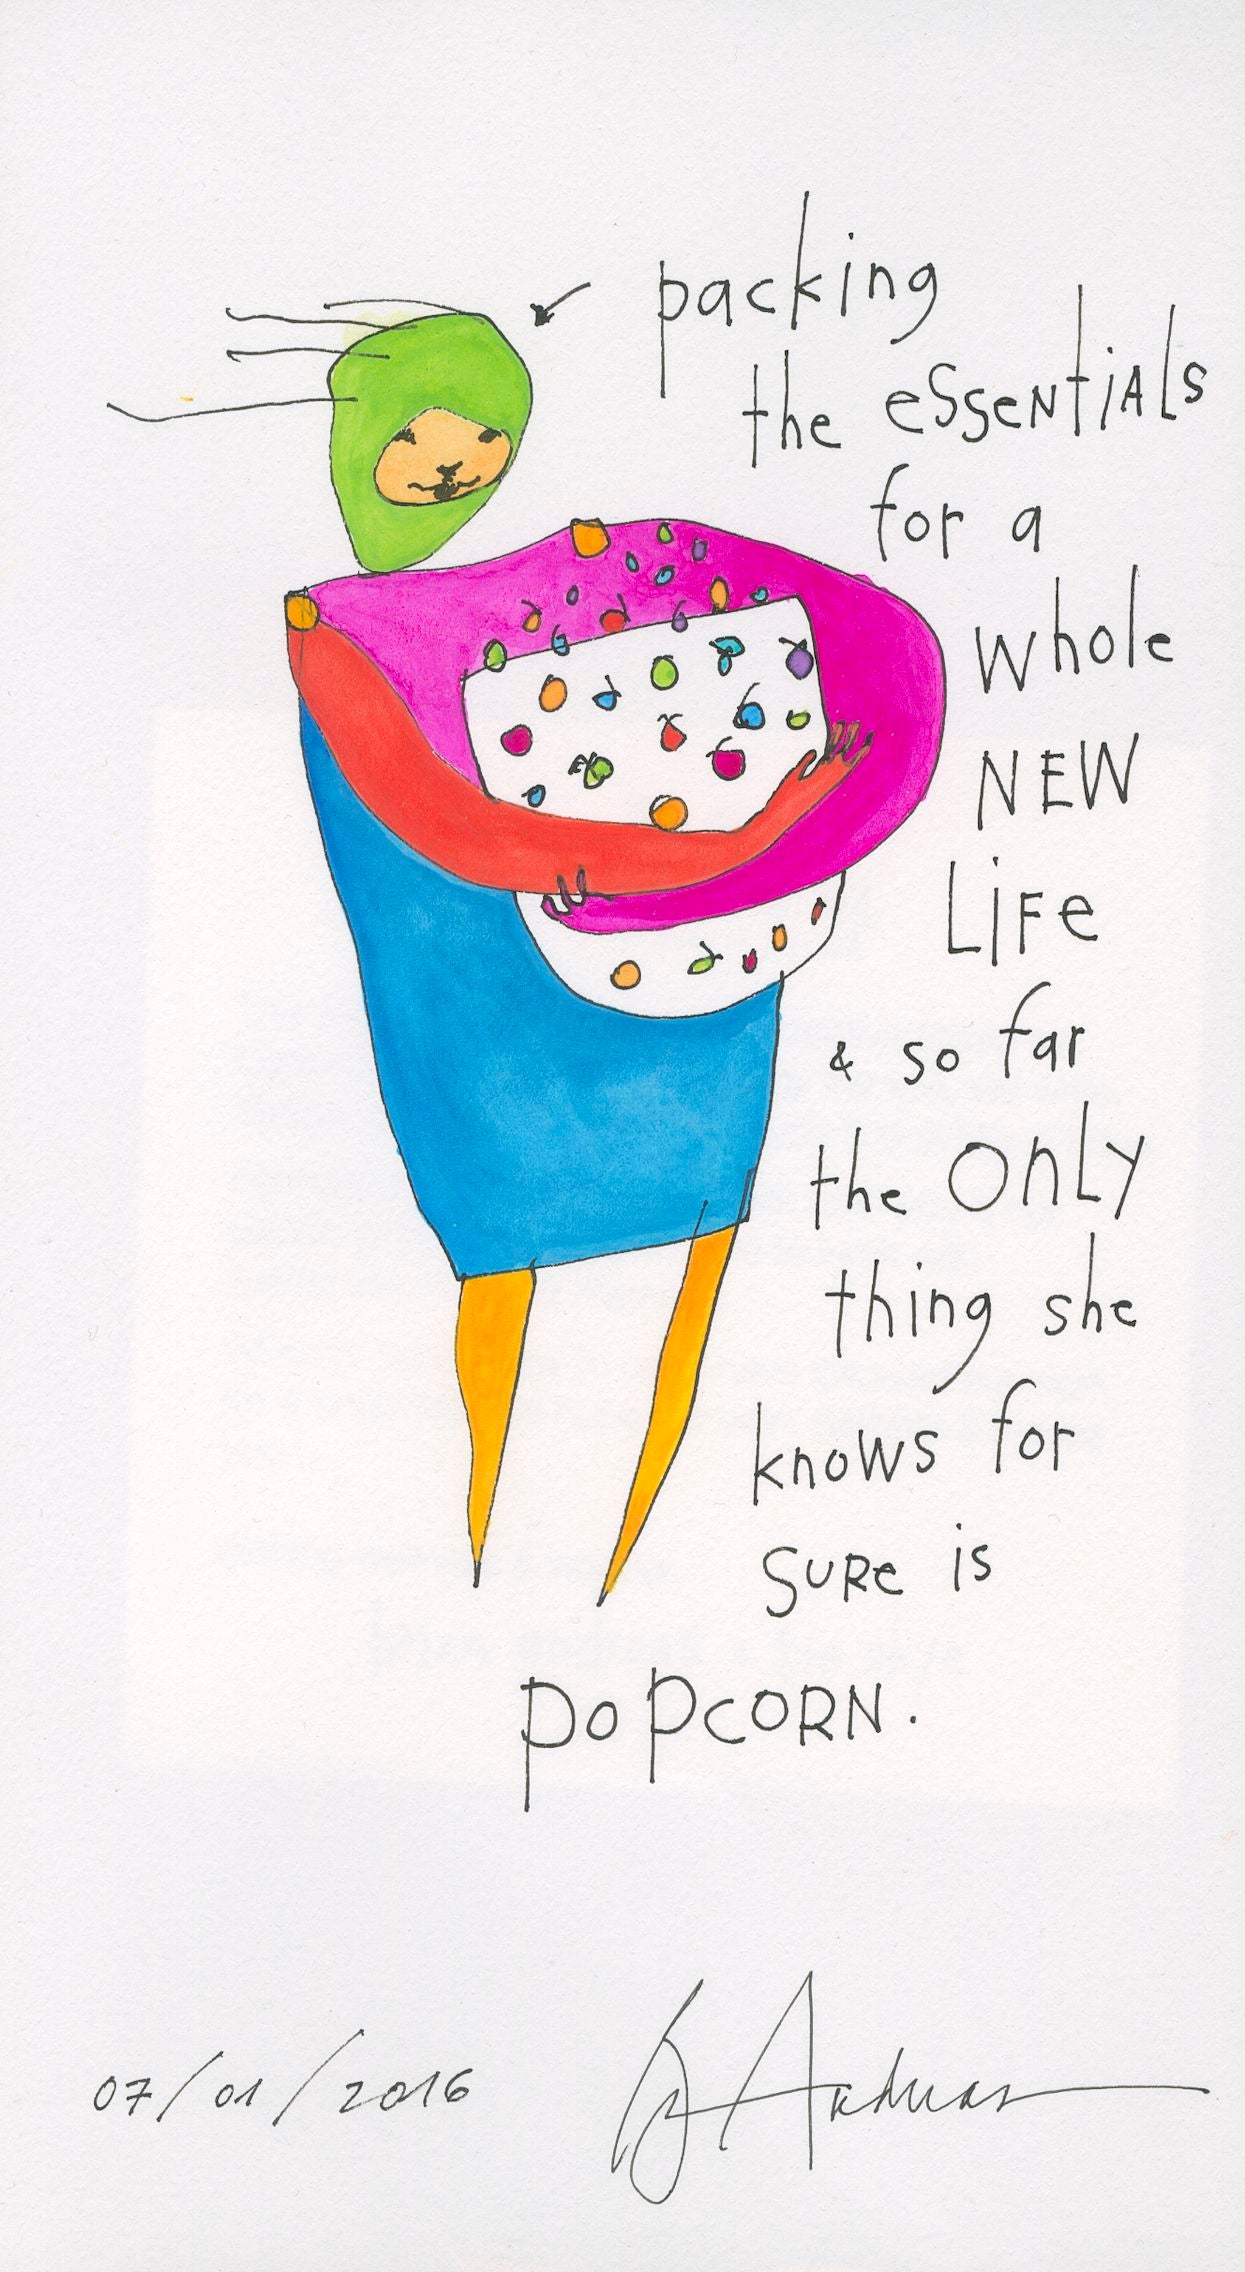 packing
the essentiALs
for a
whole
NEW
LiFe
& so far
the ONLY
thing she
knows for
SURe is
POPCORN.
07/01/2016